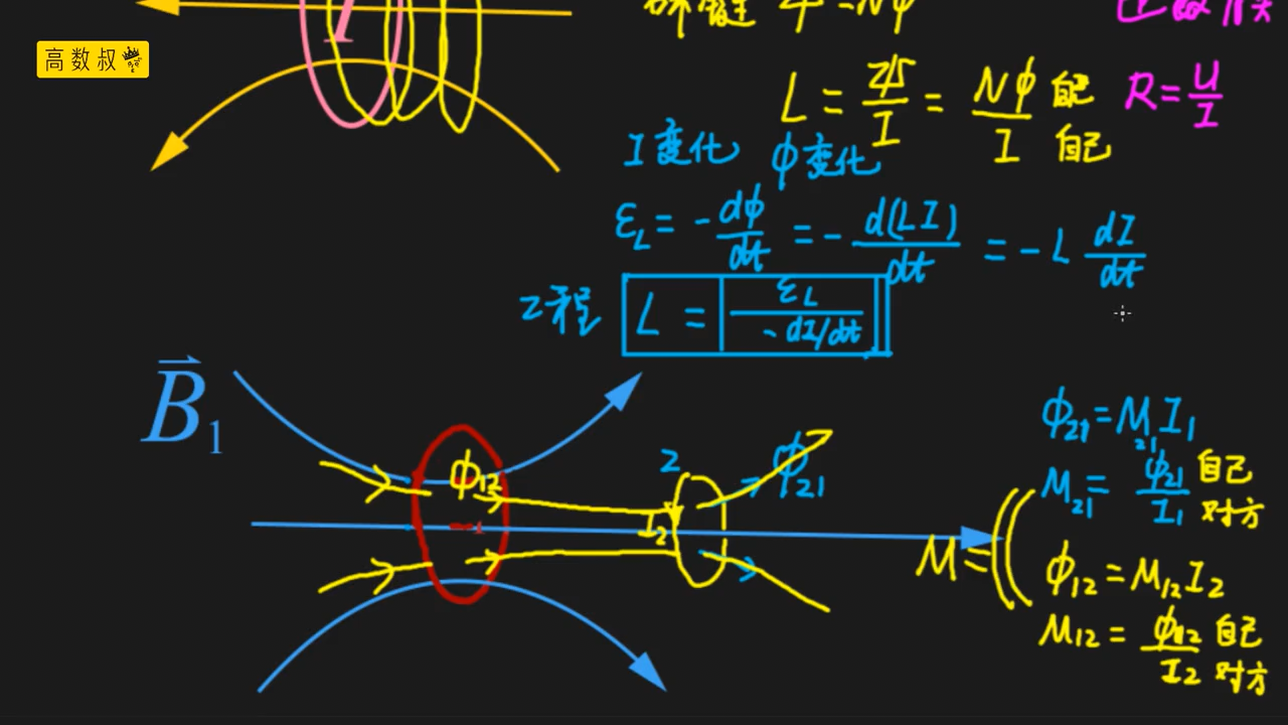 高数叔
I
Ψ=Nφ
L = Ψ/I = Nφ/I 自己 自己
R=U/I
I变化 φ变化
ε_L = -dφ/dt = -d(LI)/dt = -L dI/dt
工程 L = ε_L/-dI/dt
B₁
φ₁₂
2 φ₂₁
I₂
φ₂₁=M₂₁I₁
M₂₁= φ₂₁/I₁ 自己 对方
M=
φ₁₂=M₁₂I₂
M₁₂= φ₁₂/I₂ 自己 对方